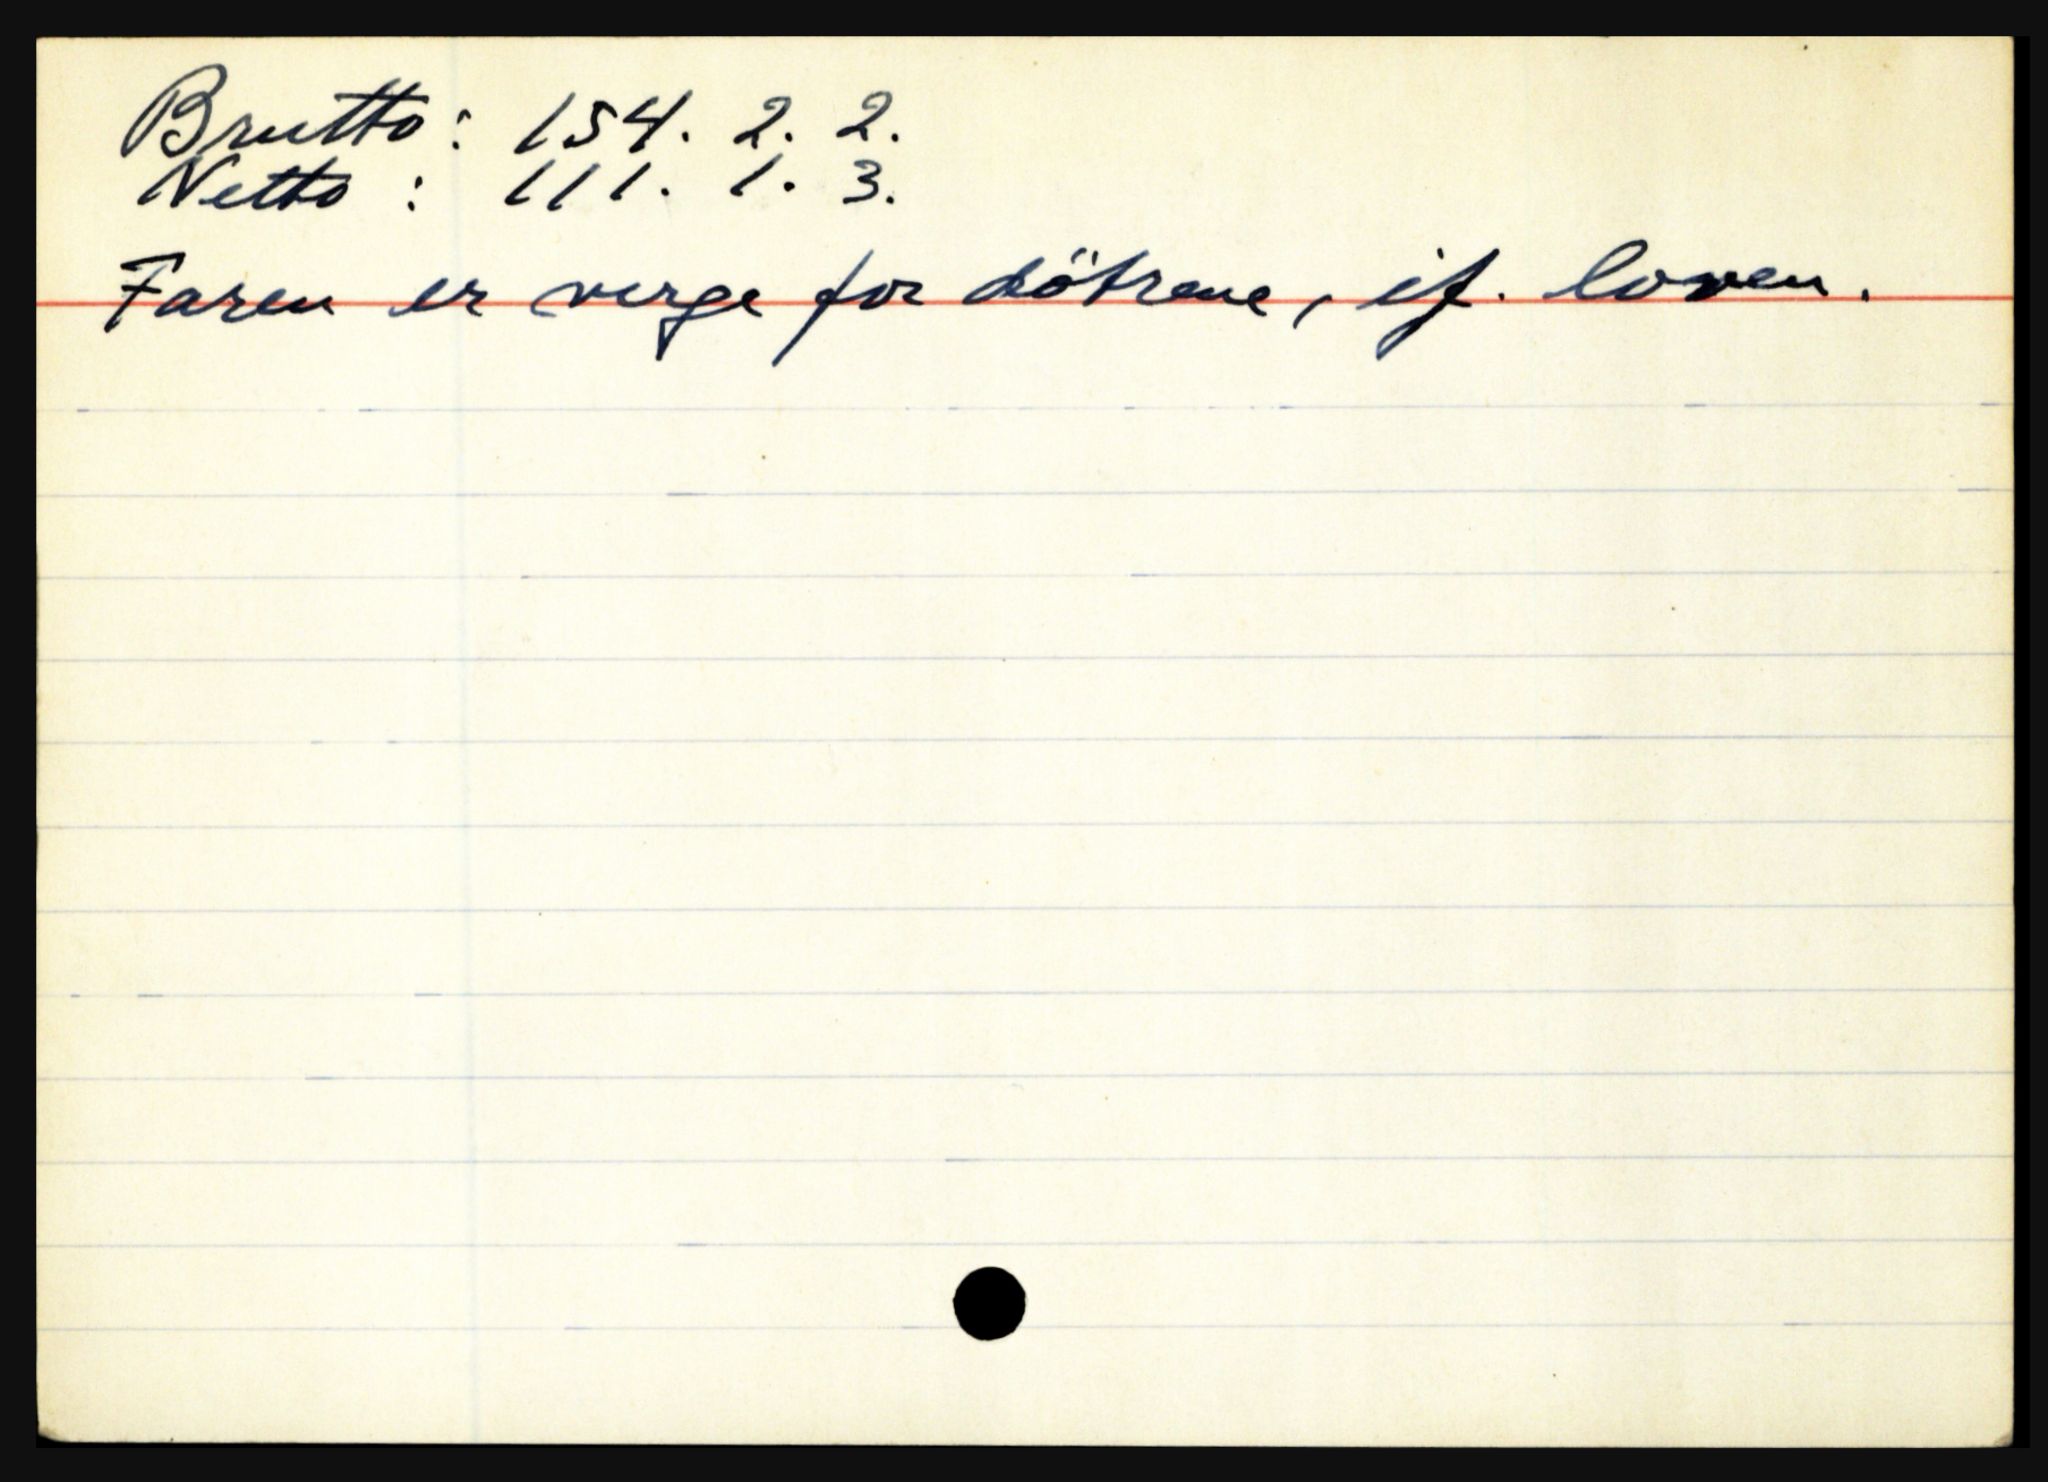 Brutto: 154. 2. 2.
Netto: 111. 1. 3.
Faren er verge for dötrene, if. loven.